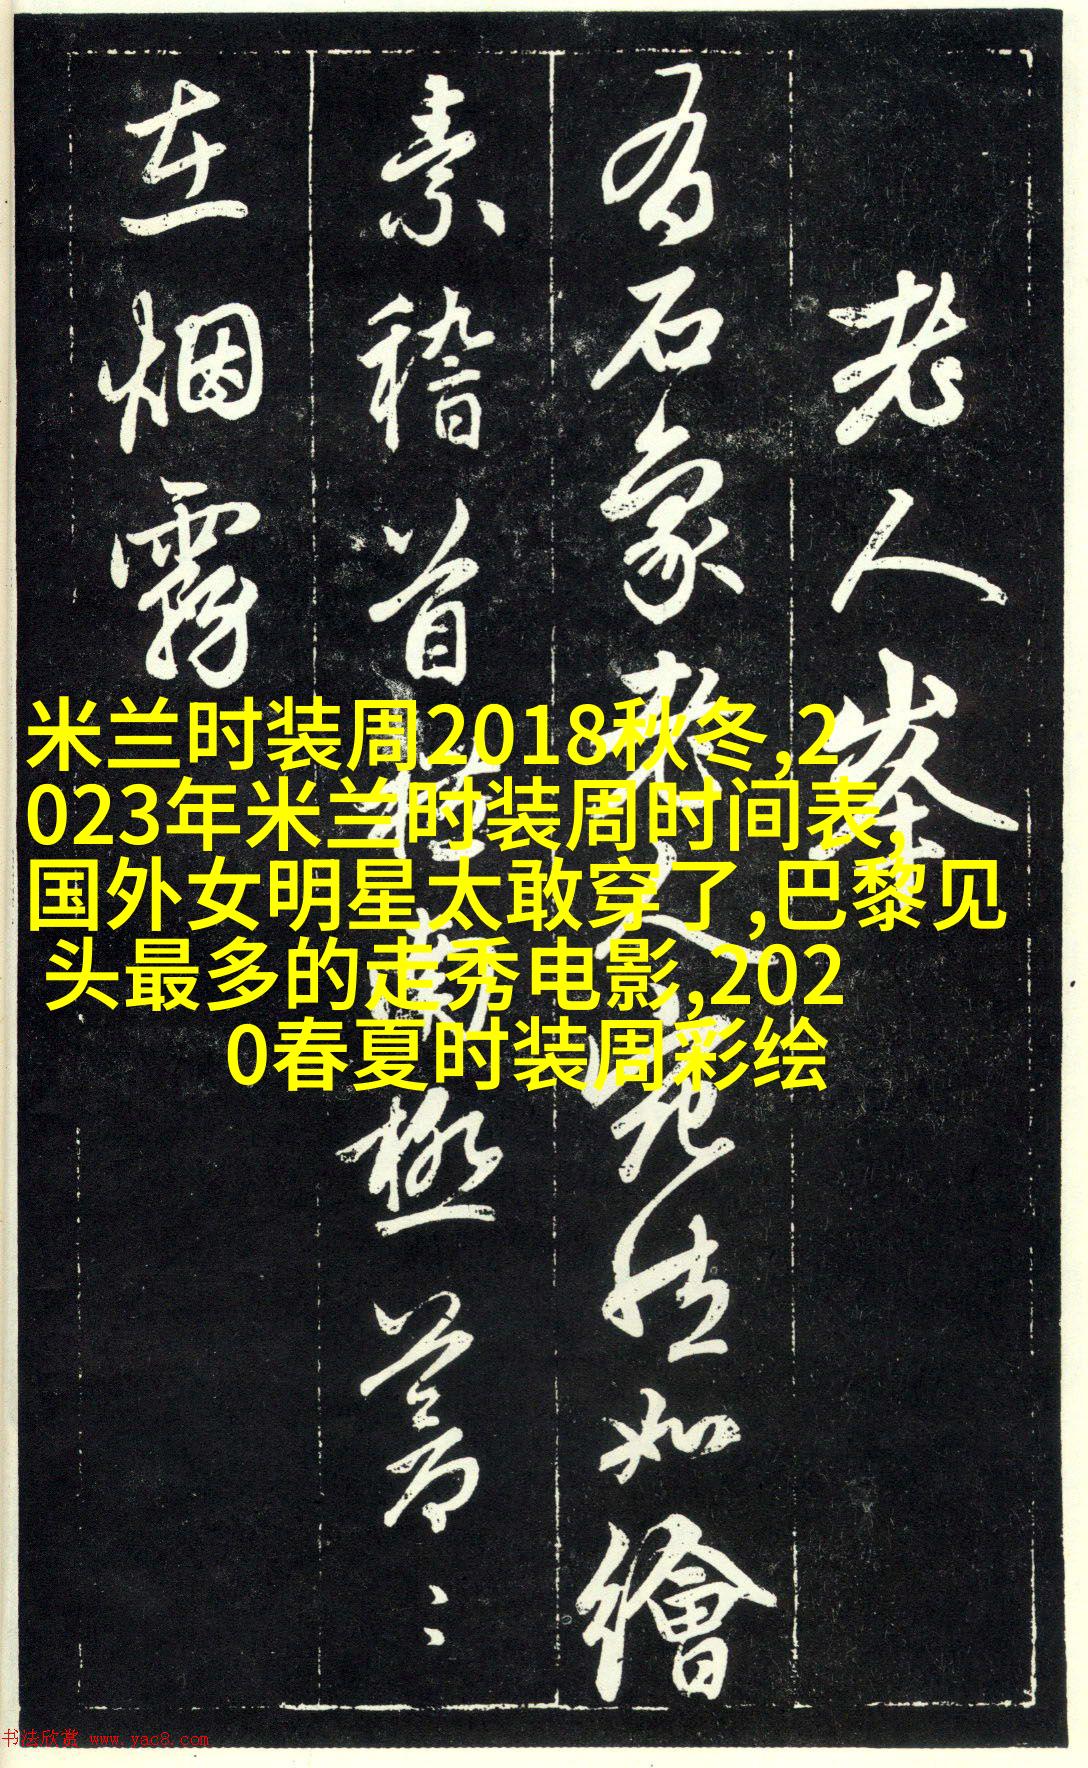 老人峯
有石象老人宛然如繪
素稽首禮南極蒼〻
在烟霧
米兰时装周2018秋冬,2
023年米兰时装周时间表,
国外女明星太敢穿了,巴黎见
头最多的走秀电影,202
0春夏时装周彩绘
书法欣赏 www.yac8.com